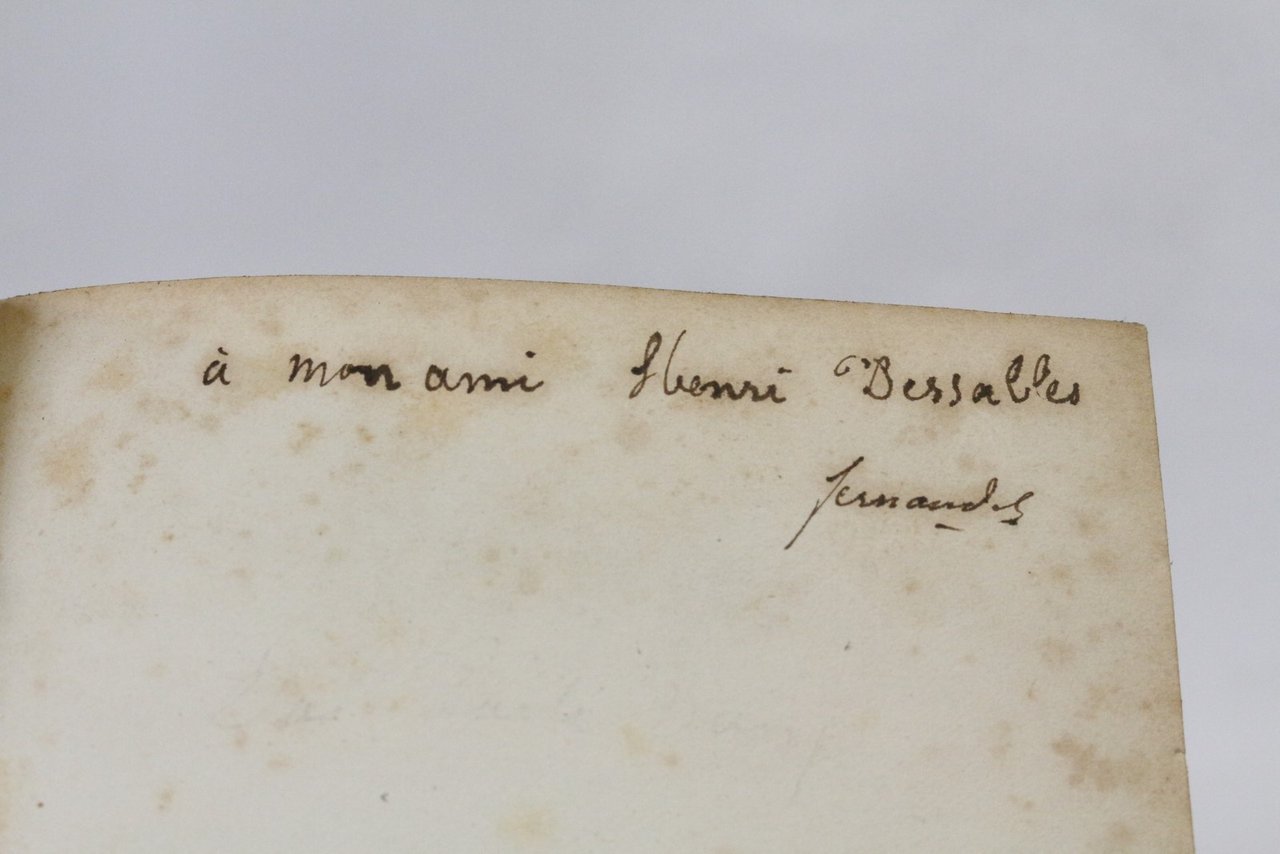 à mon ami Henri Dessalles
fernandes